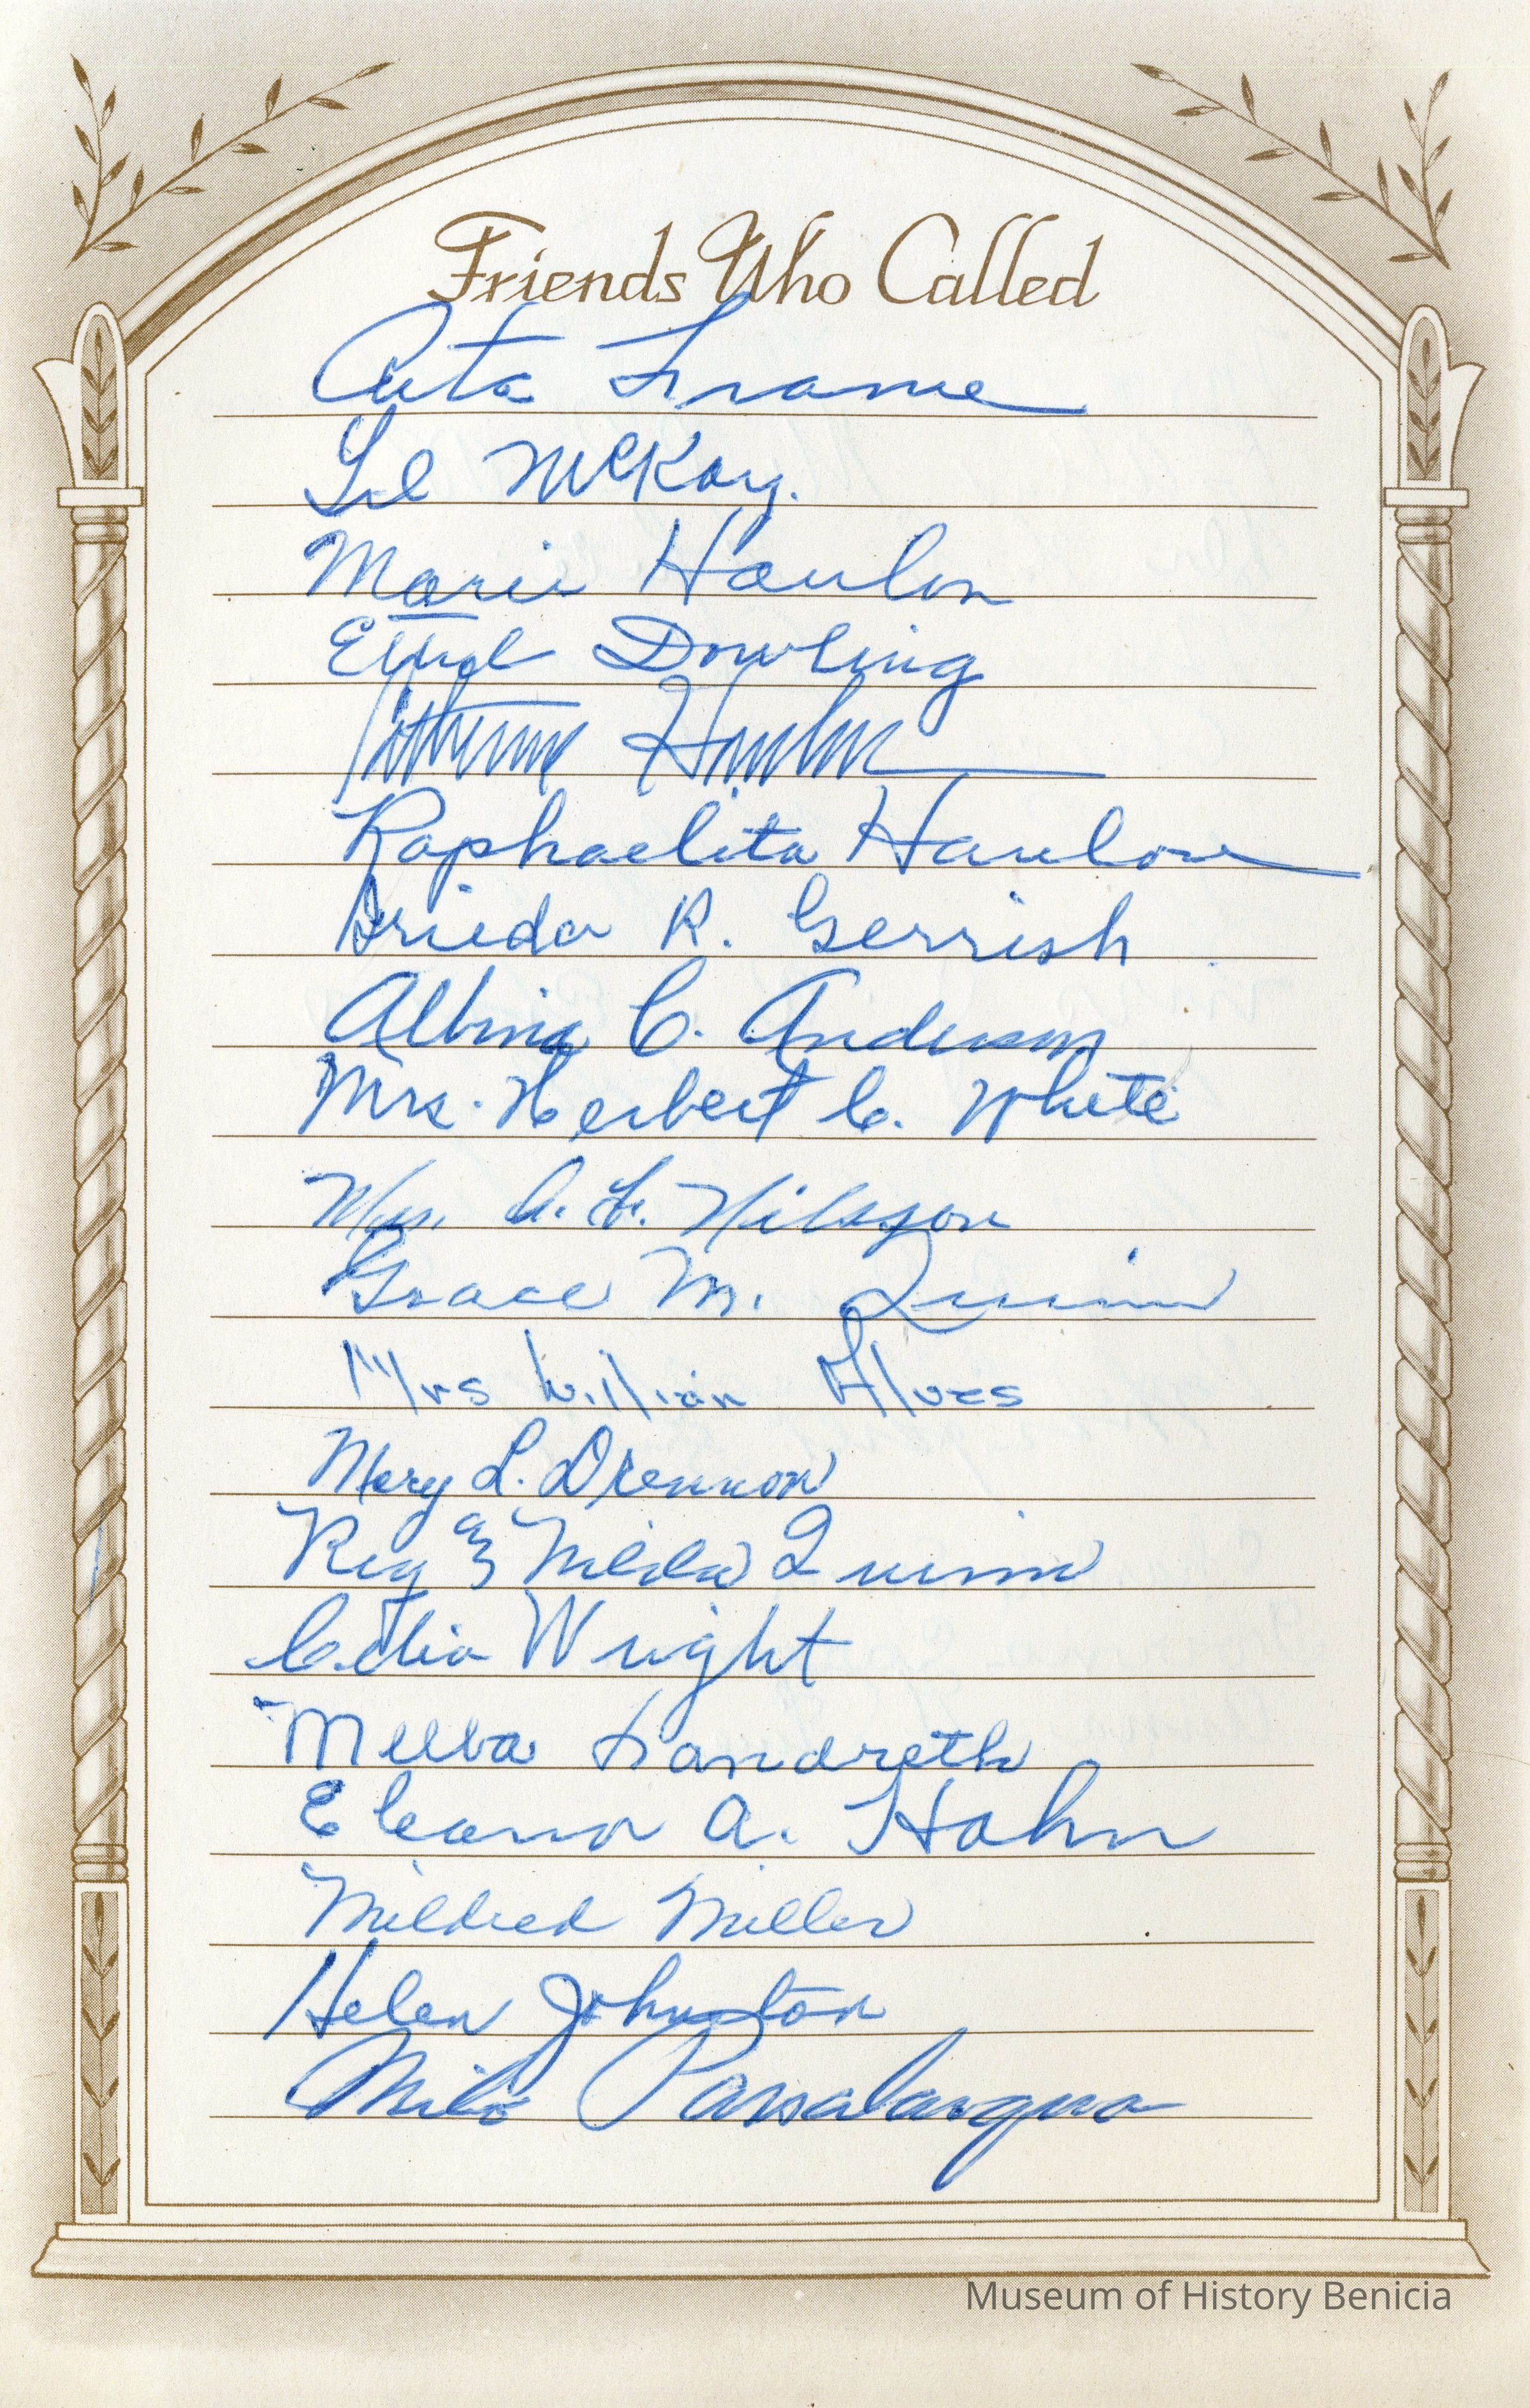 Friends Who Called
Frame
Lil McKay.
Marie Hanlon
Ethel Dowling
Katherine Hanlon
Raphaelita Hanlon
Frieda R. Gerrish
Albina C. Anderson
Mrs. Herbert C. White
Mrs. A. F. Nilsson
Grace M. Quinn
Mrs William Alves
Mary L. Drennon
Reg & Milda Quinn
Celia Wright
Melba Landreth
Eleanor A. Hahn
Mildred Miller
Helen Johnston
Milo Passalacqua
Museum of History Benicia